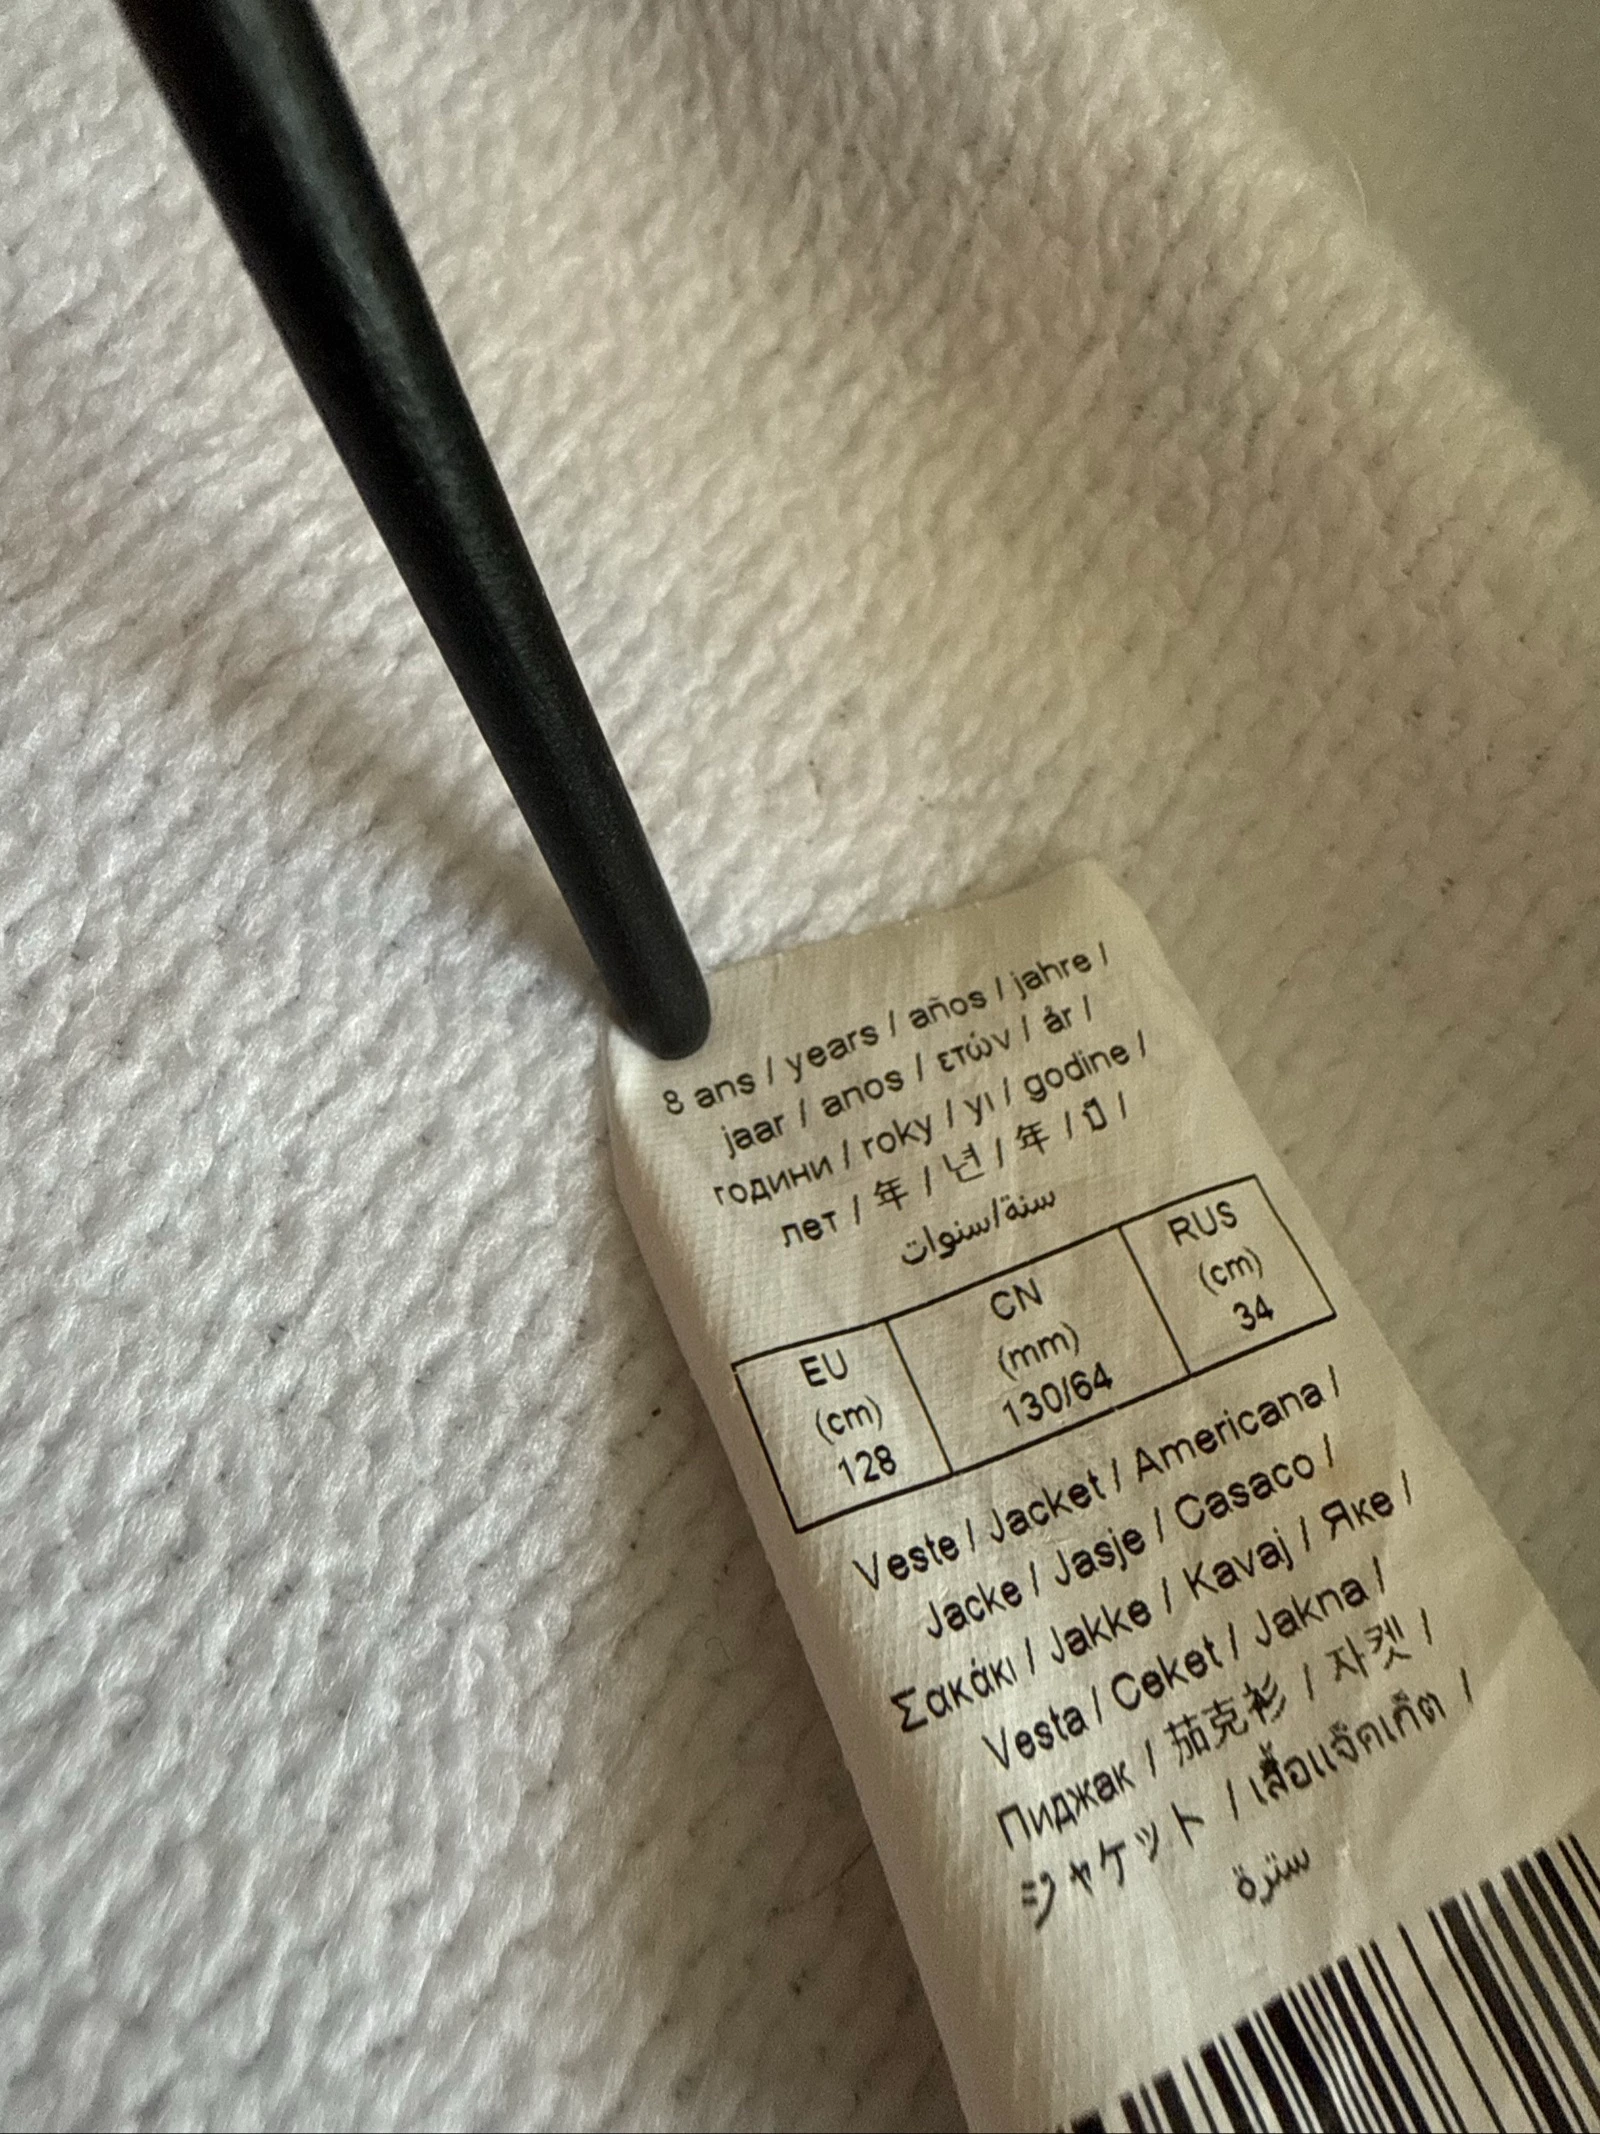 8 ans / years / años / jahre /
jaar / anos / ετών / år /
години / roky / yı / godine /
лет / 年 / 년 / 年 / ปี /
سنة/سنوات
EU
(cm)
128
CN
(mm)
130/64
RUS
(cm)
34
Veste / Jacket / Americana /
Jacke / Jasje / Casaco /
Σακάκι / Jakke / Kavaj / Яке /
Vesta / Ceket / Jakna /
Пиджак / 茄克衫 / 자켓 /
ジャケット / เสื้อแจ็คเก็ต /
سترة